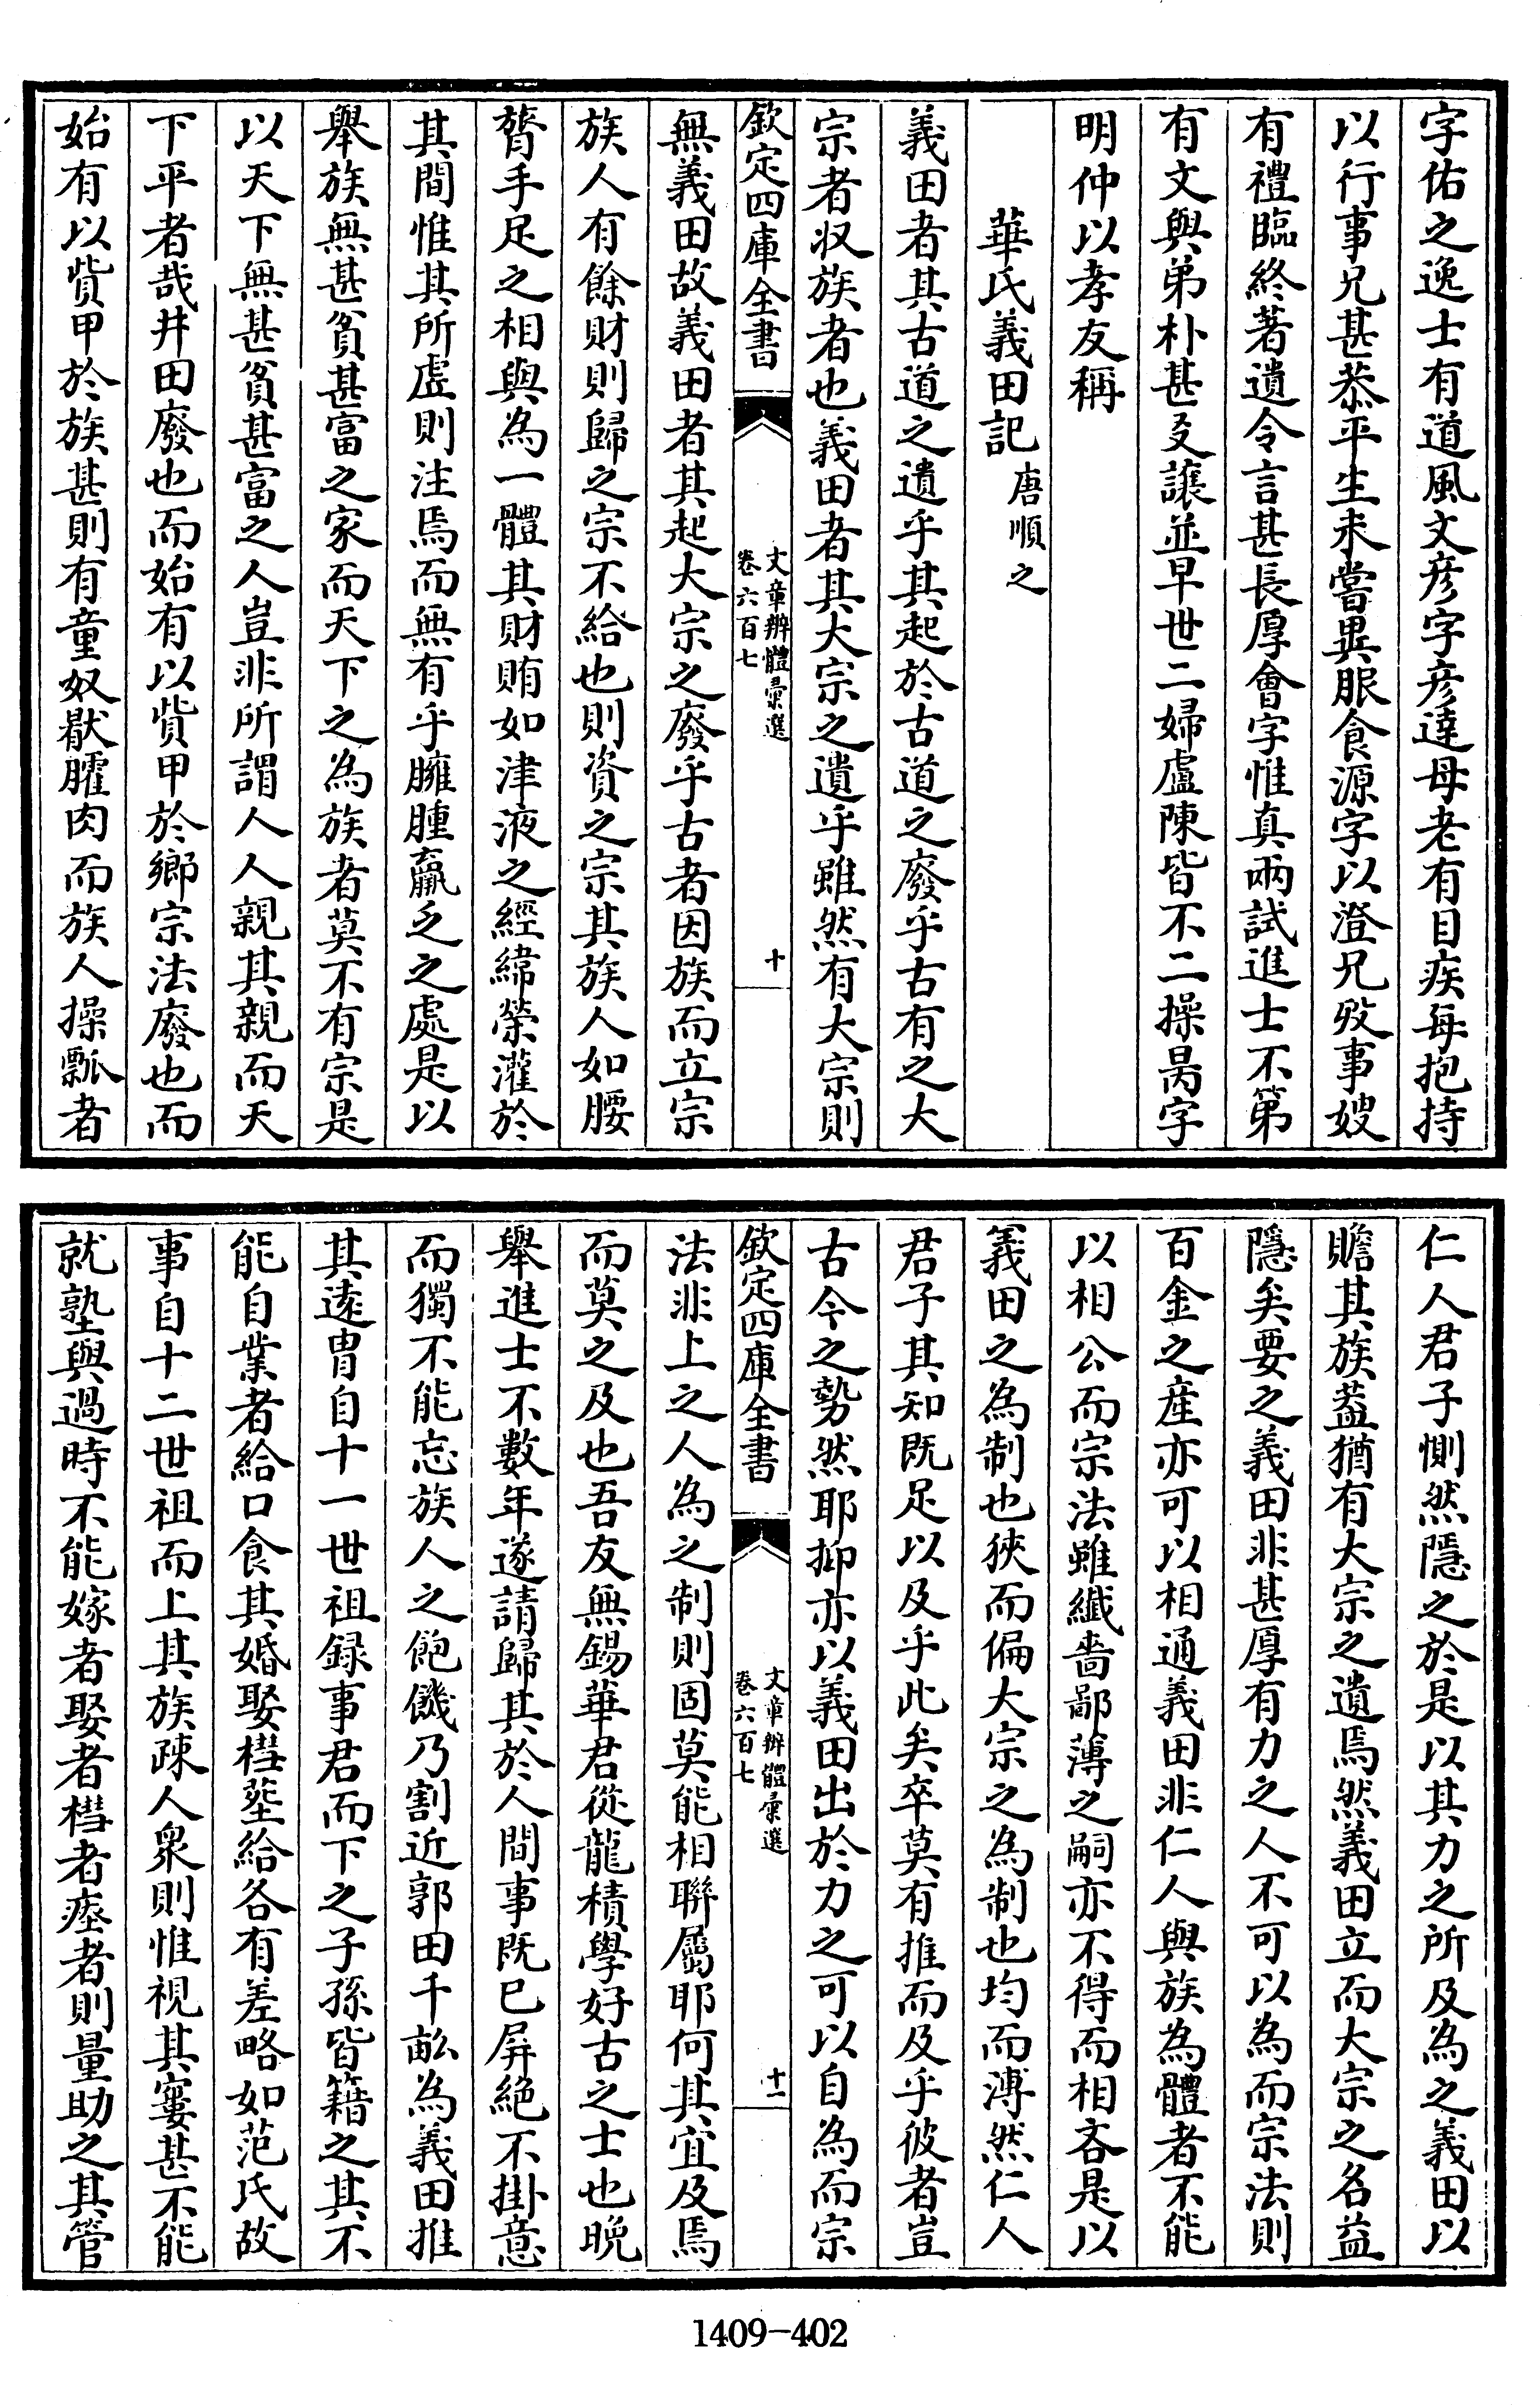 字佑之逸士有道風文彦字彦達母老有目疾每抱持
以行事兄甚恭平生未嘗異服食源字以澄兄歿事嫂
有禮臨終著遺令言甚長厚會字惟真兩試進士不第
有文與弟朴甚友讓並早世二婦盧陳皆不二操昺字
明仲以孝友稱
華氏義田記 唐順之
義田者其古道之遺乎其起於古道之廢乎古有之大
宗者收族者也義田者其大宗之遺乎雖然有大宗則
欽定四庫全書 文章辨體彙選 卷六百七 十
無義田故義田者其起大宗之廢乎古者因族而立宗
族人有餘財則歸之宗不給也則資之宗其族人如腰
膂手足之相與為一體其財賄如津液之經緯榮灌於
其間惟其所虛則注焉而無有乎臃腫羸乏之處是以
舉族無甚貧甚富之家而天下之為族者莫不有宗是
以天下無甚貧甚富之人豈非所謂人人親其親而天
下平者哉井田廢也而始有以貲甲於鄉宗法廢也而
始有以貲甲於族甚則有童奴厭臛肉而族人操瓢者
仁人君子惻然隱之於是以其力之所及為之義田以
贍其族葢猶有大宗之遺焉然義田立而大宗之名益
隱矣要之義田非甚厚有力之人不可以為而宗法則
百金之産亦可以相通義田非仁人與族為體者不能
以相公而宗法雖纖嗇鄙薄之嗣亦不得而相吝是以
義田之為制也狹而偏大宗之為制也均而溥然仁人
君子其知既足以及乎此矣卒莫有推而及乎彼者豈
古今之勢然耶抑亦以義田出於力之可以自為而宗
欽定四庫全書 文章辨體彙選 卷六百七 十一
法非上之人為之制則固莫能相聯屬耶何其宜及焉
而莫之及也吾友無錫華君從龍積學好古之士也晚
舉進士不數年遂請歸其於人間事既已屏絶不掛意
而獨不能忘族人之飽饑乃割近郭田千畝為義田推
其遠胄自十一世祖録事君而下之子孫皆籍之其不
能自業者給口食其婚娶槥塟給各有差略如范氏故
事自十二世祖而上其族疎人衆則惟視其窶甚不能
就塾與過時不能嫁者娶者槥者瘞者則量助之其管
1409-402